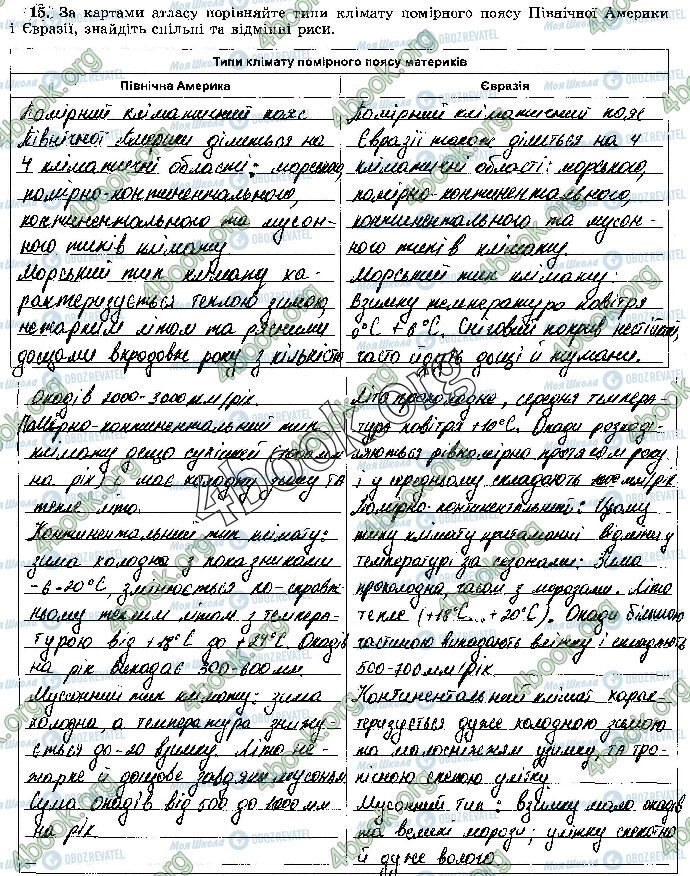 15. За картами атласу порівняйте типи клімату помірного поясу Північної Америки
і Євразії, знайдіть спільні та відмінні риси.
Типи клімату помірного поясу материків
Північна Америка
Помірний кліматичний пояс
Північної Америки ділиться на
4 кліматичні області: морського,
помірно-континентального,
континентального та мусон-
ного типів клімату.
Морський тип клімату ха-
рактеризується теплою зимою,
нежарким літом та рясними
дощами впродовж року з кількістю
Опадів 2000-3000 мм/рік.
Помірно-континентальний тип
клімату дещо
на рік), має холодну зиму та
тепле літо.
Континентальний тип клімату:
зима холодна з показниками
-6-20°С, змінюється по-справж-
ньому теплим літом з темпера-
турою від +18°С до +24°С. Опадів
на рік випадає 300-600 мм.
Мусонний тип клімату: зима
холодна, а температура знижу-
ється до -20 взимку. Літо не-
жарке й дощове завдяки мусонам
Сума опадів від 500 до 1000 мм
на рік
Євразія
Помірний кліматичний пояс
Євразії також ділиться на 4
кліматичні області: морського,
помірно-континентального,
континентального та мусон-
ного типів клімату.
Морський тип клімату:
Взимку температура повітря
0°С +6°С. Сніговий покрив нестійкий,
часто йдуть дощі й тумани.
Літо прохолодне, середня темпера-
тура повітря +10°С. Опади розподі-
ляються рівномірно протягом року
і у середньому складають мм/рік
Помірно-континентальний: Цьому
типу клімату притаманні відміни у
температурі за сезонами: Зима
прохолодна, часом з морозами. Літо
тепле (+18°С...+20°С). Опади більшою
частиною випадають влітку і складають
500-700 мм/рік
Континентальний клімат харак-
теризується дуже холодною зимою
та малосніжжям узимку, та тро-
пічною спекою улітку
Мусонний тип: взимку мало опадів
та великі морози; улітку спекотно
й дуже волого.
4book.org
4book.org
Моя Школа
OBOZREVATEL